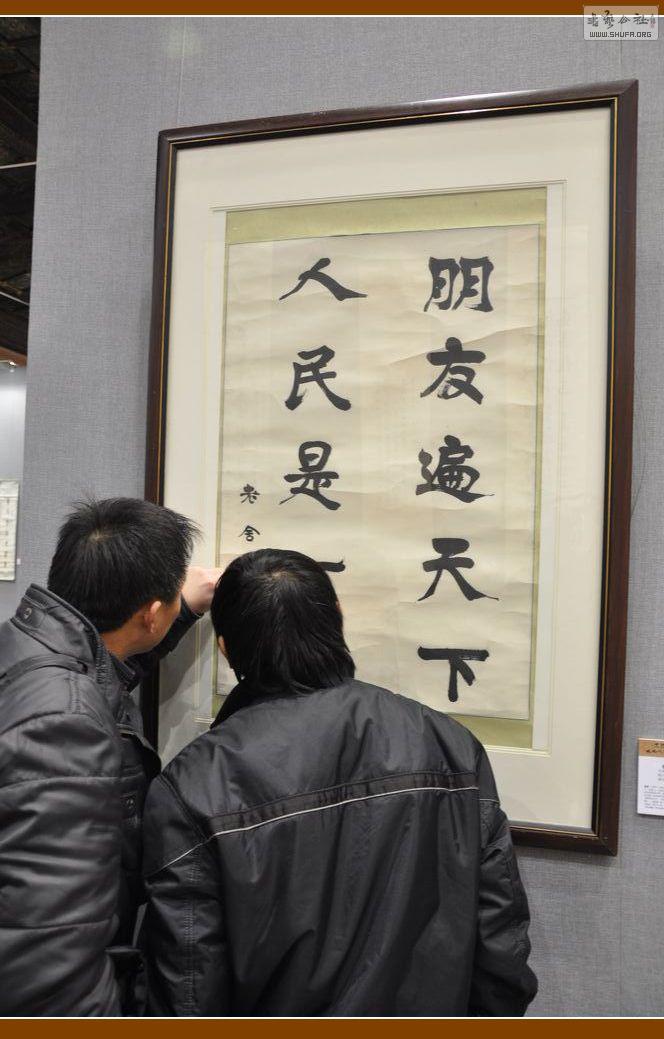 朋友遍天下
人民是一
老舍
書藝公社
WWW.SHUFA.ORG